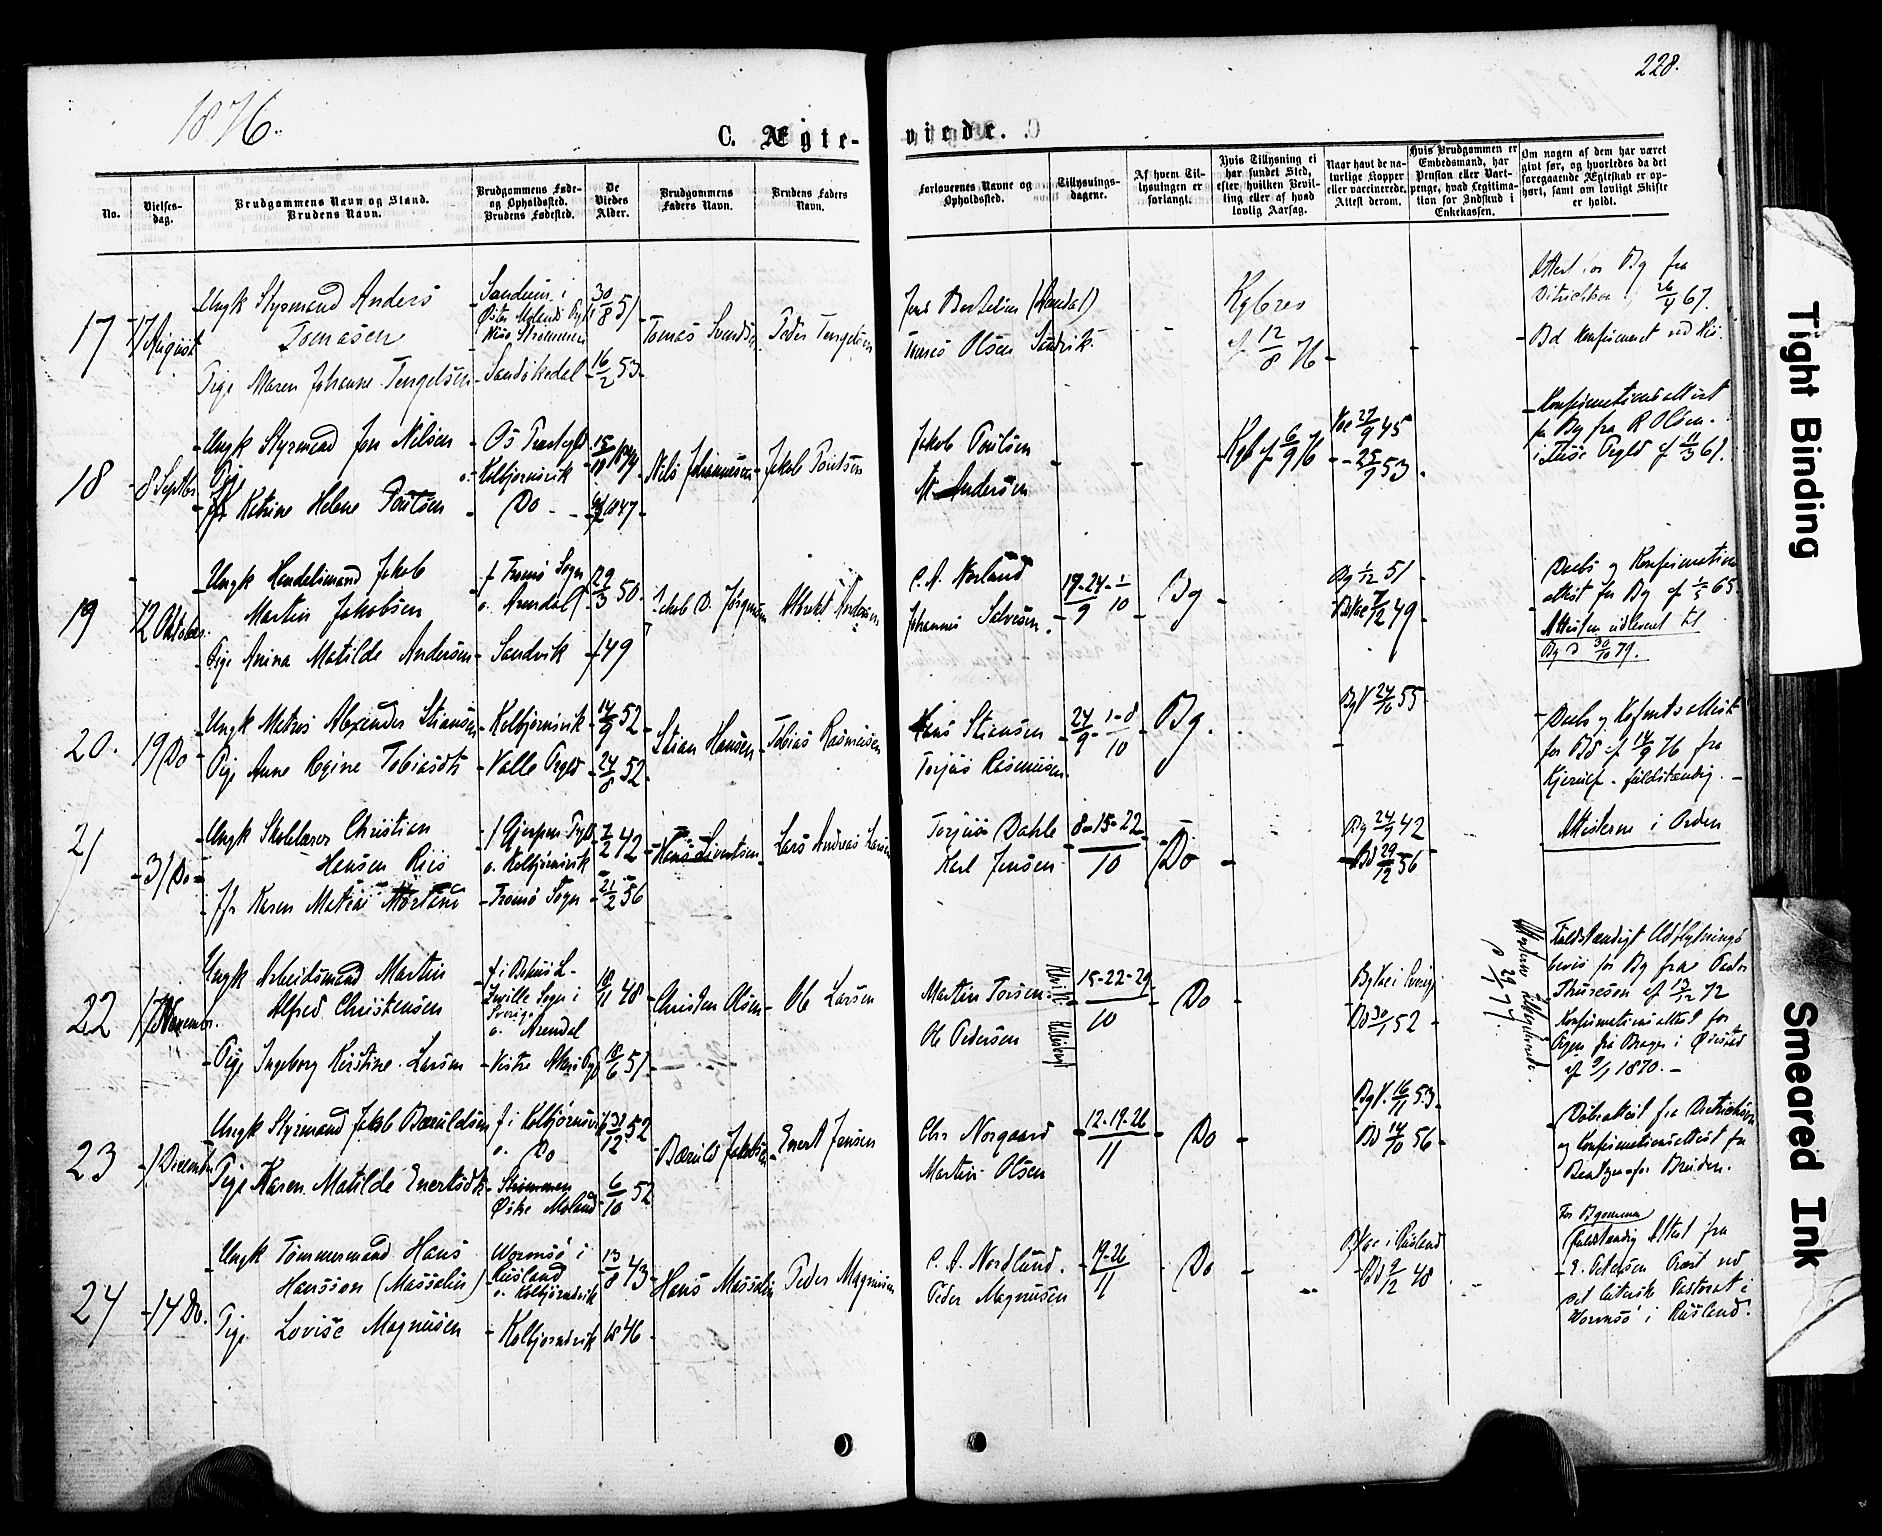 228.
1876.
C. Ægte-
viede.
No.
Vielses-
dag.
Brudgommens Navn og Stand.
Brudens Navn.
Brudgommens Føde-
og Opholdssted.
Brudens Fødested.
De
Viedes
Alder.
Brudgommens
Faders Navn.
Brudens Faders
Navn.
Forlovernes Navne og
Opholdssted.
Tillysnings-
dagene.
Af hvem Til-
lysningen er
forlangt.
Hvis Tillysning ei
har fundet Sted,
efter hvilken Bevil-
ling eller af hvad
lovlig Aarsag.
Naar havt de na-
turlige Kopper
eller vaccinerede.
Attest derom.
Hvis Brudgommen er
Embedsmand, har
Pension eller Vart-
penge, hvad Legitima-
tion for Indskud i
Enkekassen.
Om nogen af dem har været
givt før, og hvorledes da det
foregaaende Ægteskab er op-
hørt, samt om lovligt Skifte
er holdt.
17
17 August
Ungk Styrmand Anders
Tomasen
Pige Maren Johanne Tengelsen
Sandum i
Strømmen
Sandåkedal
30/8 51
16/2 53
Tomas Svendsen
Peder Tengelsen
Jens Bertelsen (Arendal)
Tomas Olsen Sandvik
Kgbrev
af 12/8 76
Attest for Bg fra
67.
Bd konfirmeret ved
18
8 Septbr
Ungk Styrmand Jens Nilsen
Pige
Katrine Helene Povlsen
Os Præstegld
o. Kolbjørnsvik
Do
1847
Nils Johannesen
Jakob Povlsen
Jakob Povlsen
Andersen
Kgb af 6/9 76
Vac 27/9 45
25/7 53
Konfirmationsattest
for Bg fra R Olsen
19
12 Oktober
Ungk Handelsmand Jakob
Martin Jakobsen
Pige Anina Matilde Andersen
f Tromø Sogn
o. Arendal
Sandvik
29/3 50
49
Jakob D. Jørgensen
Albrekt Andersen
C. A. Norlund
Johannes Salvesen
17-24/9 1/10
Bg
Bg 1/12 51
49
Daabs og Konfirmations
attest for Bg af 65.
Attesten udleveret til
Bg d 30/10 79.
20.
19 Do
Ungk Matias Alexander Stiansen
Pige Anne Regine Tobiasdtr
Kolbjørnsvik
Valle Prgld
14/9 52
24/8 52
Stian Hansen
Tobias Rasmusen
Hans Stiansen
Torjus Rasmusen
24/9 1-8/10
Bg.
BgV 24/10 55
Daabs og Kofmtsattest
for Bd af 14/9 76 fra
Kjerulf fuldstændig.
21
31 Do
Ungk Skolelærer Christian
Hansen Riis
Jfr Karen Matias Mørland
f Gjerpen Prgld
o. Kolbjørnsvik
Tromø Sogn
7/2 42
21/2 56
Hans Sivertsen
Lars Andreas Larsen
Torjus Dahle
Karl Jensen
8-15-22
10
Do
Bg 24/9 42
Bd 29/12 56
Attesterne i Orden
22
Novembr.
Ungk Arbeidsmand Martin
Alfred Christensen
Pige Ingeborg Kirstine Larsen
Sogn i
Sverige
o. Arendal
18/11 48
18/6 51
Christen Olsen
Ole Larsen
Martin Torsen
Ole Pedersen
15-22-29
10
Do
Bg Vac i Sverige
Bd 30/1 52
Fuldstændigt Udflytnings
bevis for Bg fra Pastor
Thuresson af 13/12 72
Konfirmationsattest for
Pigen fra Brager i Øiestad
af 9/1 1870.
23
1 December
Ungk Styrmand Jakob Bæruldsen
Pige Karen Matilde Enertsdtr
f. i Kolbjørnsvik
o. Do
Strømmen
Østre Moland
31/12 52
6/10 52
Bæruld Jakobsen
Enert Jensen
Chr Norgaard
Martin Olsen
12-19-26
11
Do
BgV. 16/11 53
Bd 14/10 56
Daabsattest fra
og konfirmationsattest fra
for Bruden.
24
14 Do.
Ungk Tømmermand Hans
Hansson (Massalin)
Pige Lovise Magnusen
Wormsö i
Rusland
o. Kolbjørnsvik
Kolbjørnsvik
13/8 43
1846
Hans Massalin
Peder Magnusen
C. A. Nordlund.
Peder Magnusen
19-26
11
Do
BgVac i Rusland
Bd 9/12 48
For Bgommen
fuldstændig Attest fra
Petersen Præst ved
det luterske Pastorat i
Wormsö i Rusland.
Tight Binding
Smeared Ink